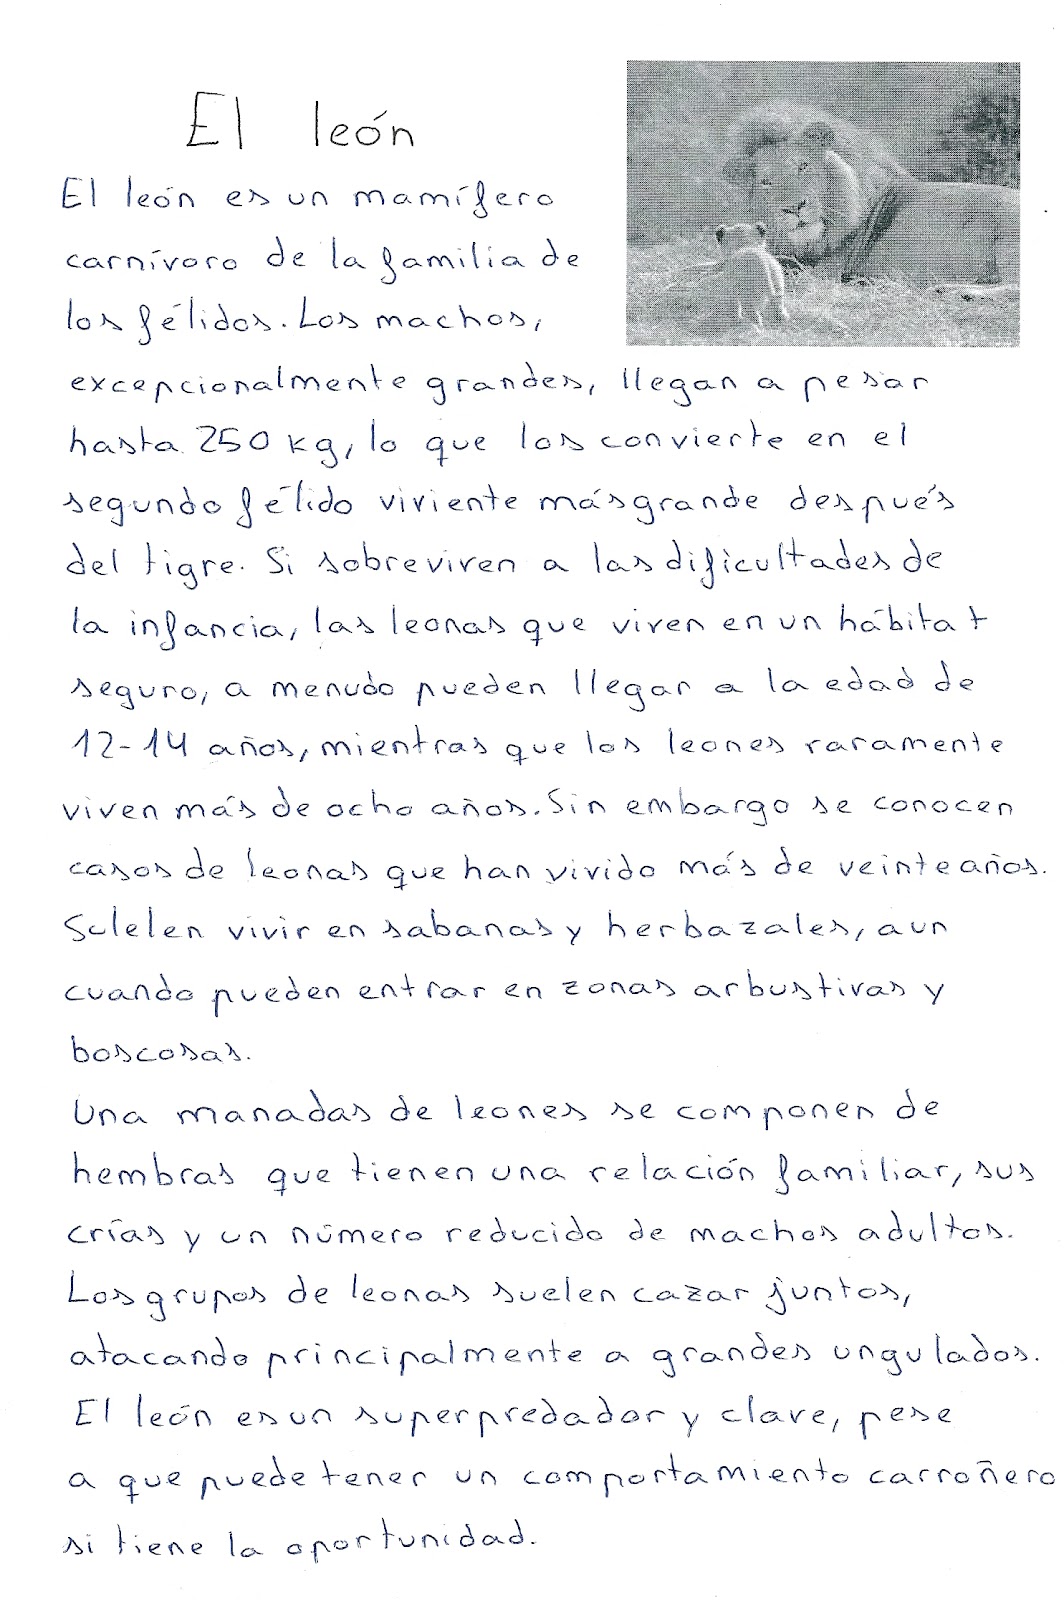 El león
El león es un mamífero
carnívoro de la familia de
los félidos. Los machos,
excepcionalmente grandes, llegan a pesar
hasta 250 kg, lo que los convierte en el
segundo félido viviente más grande después
del tigre. Si sobreviven a las dificultades de
la infancia, las leonas que viven en un hábitat
seguro, a menudo pueden llegar a la edad de
12-14 años, mientras que los leones raramente
viven más de ocho años. Sin embargo se conocen
casos de leonas que han vivido más de veinte años.
Sulelen vivir en sabanas y herbazales, aun
cuando pueden entrar en zonas arbustivas y
boscosas.
Una manadas de leones se componen de
hembras que tienen una relación familiar, sus
crías y un número reducido de machos adultos.
Los grupos de leonas suelen cazar juntos,
atacando principalmente a grandes ungulados.
El león es un superpredador y clave, pese
a que puede tener un comportamiento carroñero
si tiene la oportunidad.